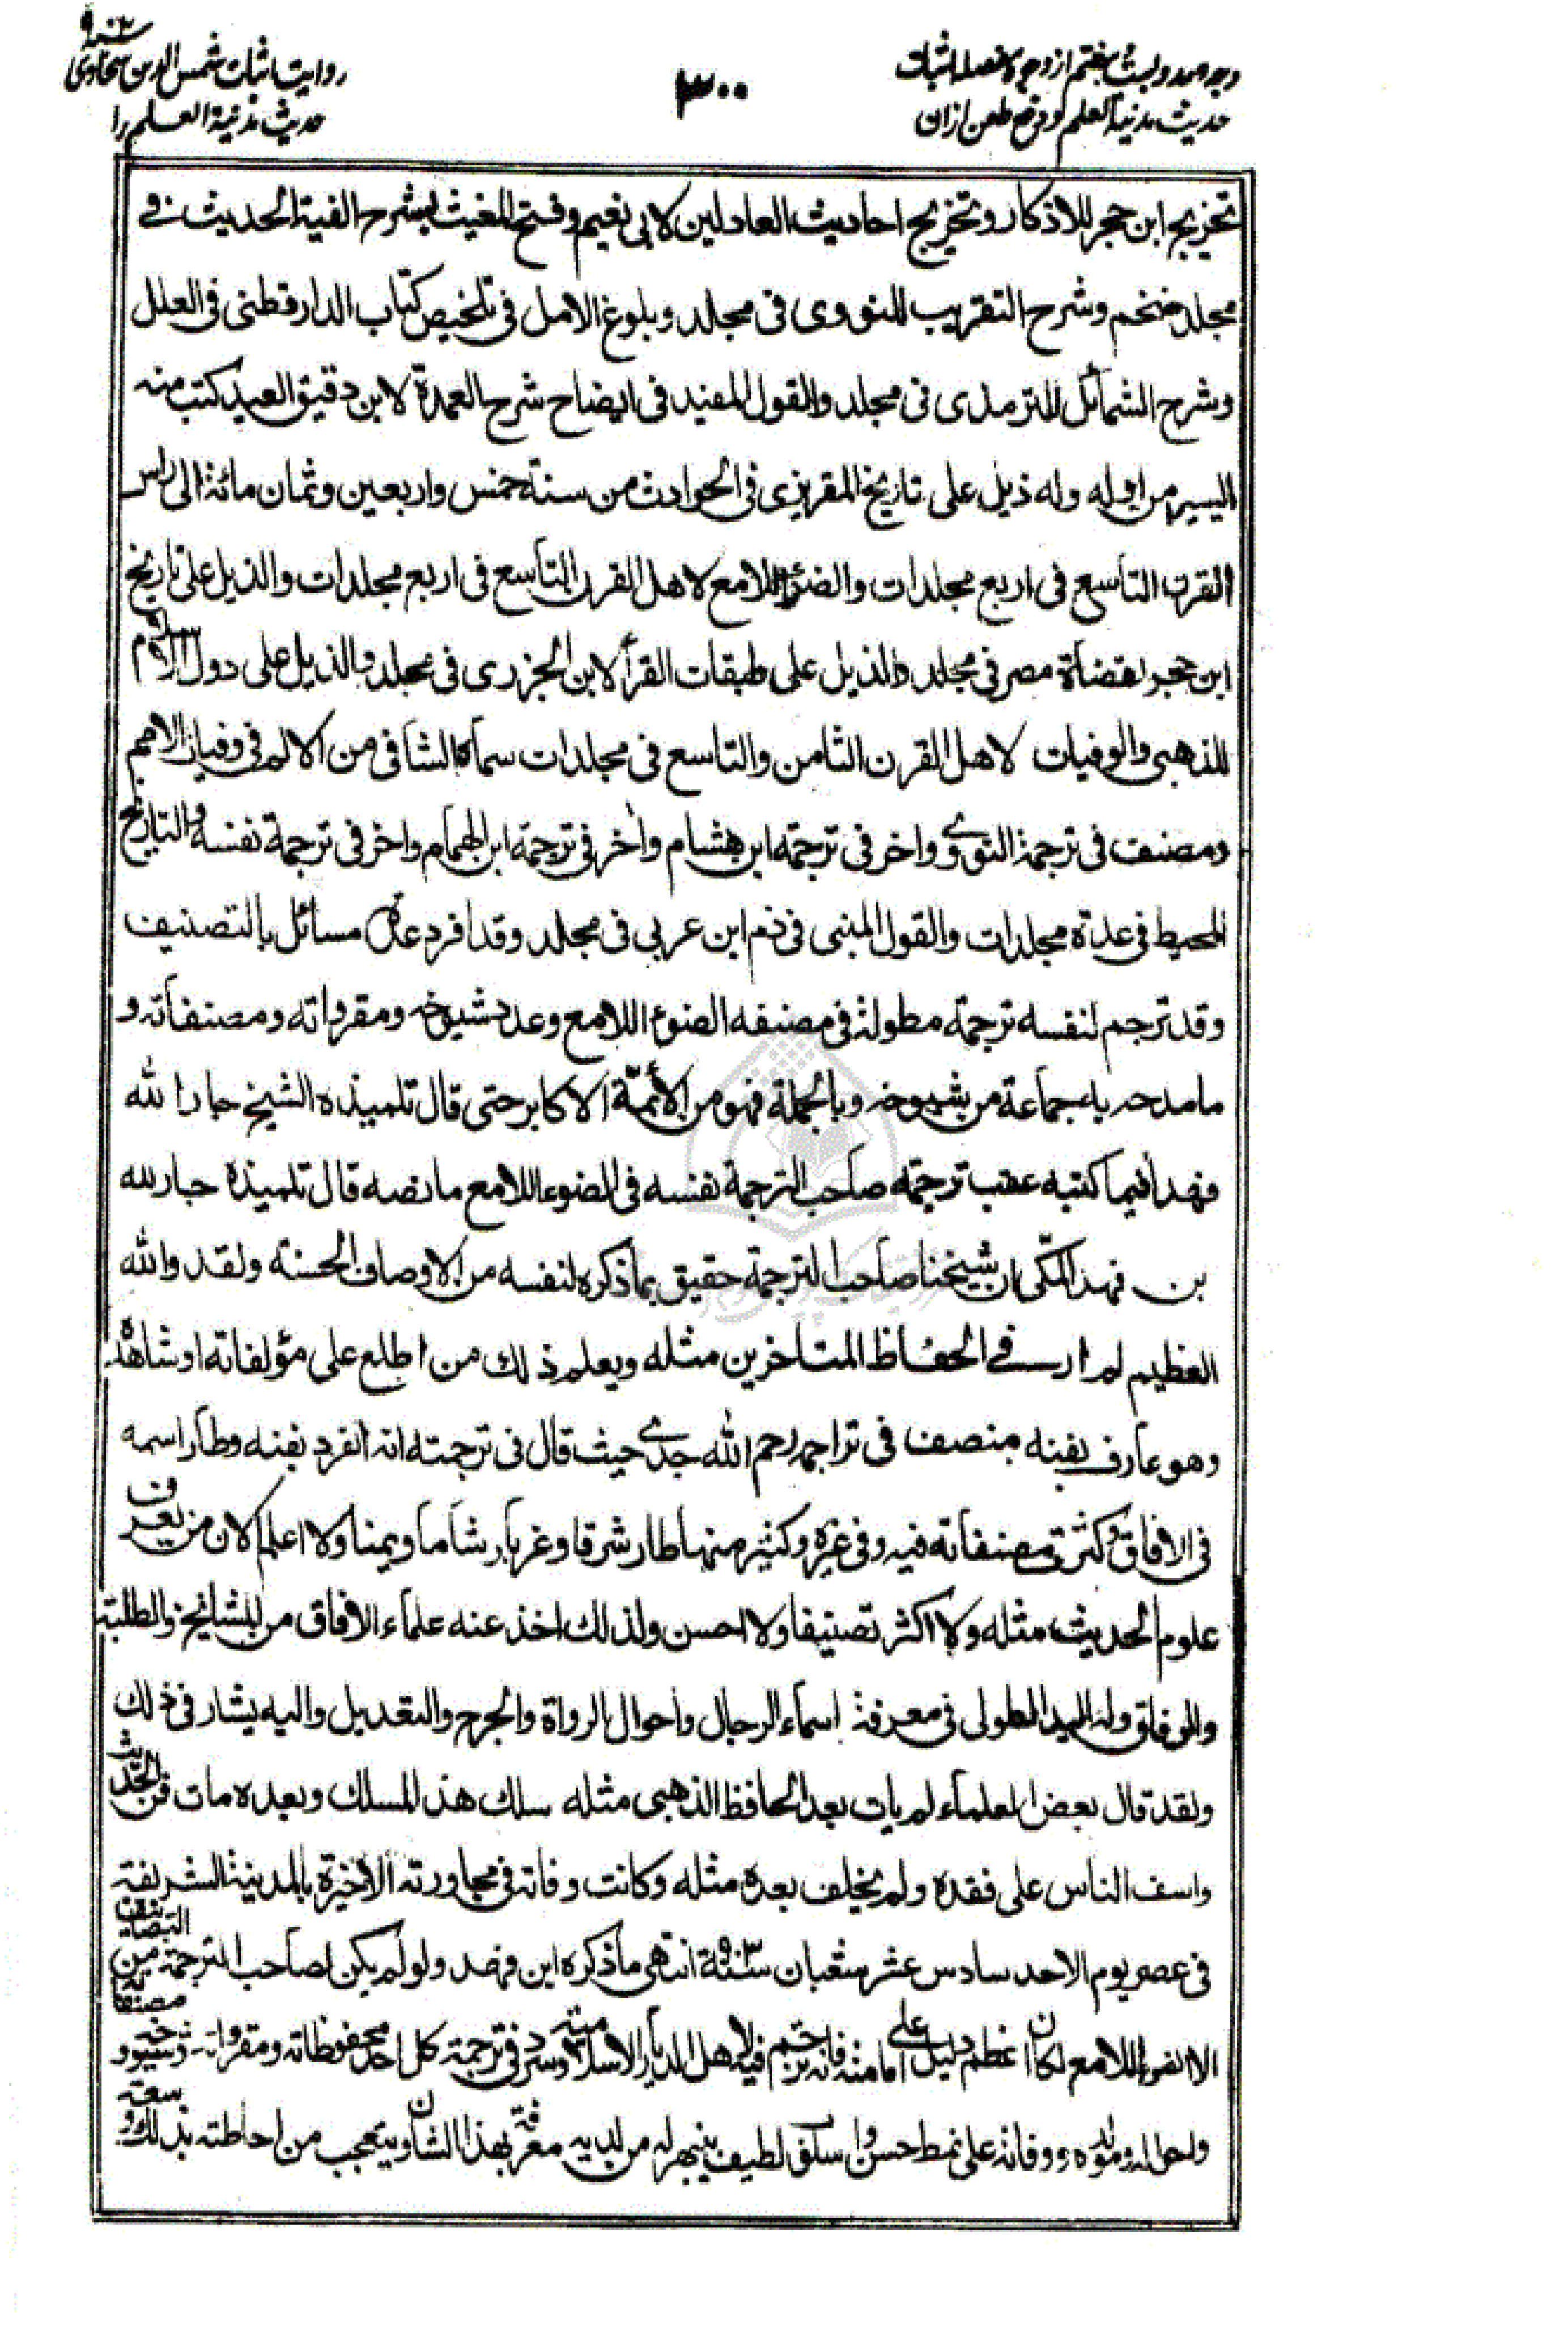 وجه صد و بست و هفتم از وجوه مفصله اثبات
حديث مدينة العلم و دفع طعن ازان
٣٠٠
روايت اثبات شمس الدين سخاوى
حديث مدينة العلم را
تخريج ابن حجر للاذكار وتخريج احاديث العادلين لابى نعيم وفتح المغيث بشرح الفية الحديث فى
مجلد ضخم وشرح التقريب للنووى فى مجلد وبلوغ الامل فى تلخيص كتاب الدارقطنى فى العلل
وشرح الشمائل للترمذى فى مجلد والقول المفيد فى ايضاح شرح العمدة لابن دقيق العيد كتب منه
اليسير من اوله وله ذيل على تاريخ المقريزى فى الحوادث من سنة خمس واربعين وثمان مائة الى راس
القرن التاسع فى اربع مجلدات والضوء اللامع لاهل القرن التاسع فى اربع مجلدات والذيل على تاريخ
ابن حجر لقضاة مصر فى مجلد والذيل على طبقات القرأ لابن الجزرى فى مجلد والذيل على دول الاسلام
للذهبى والوفيات لاهل القرن الثامن والتاسع فى مجلدات سماه الشافى من الالم فى وفيات الامم
ومصنف فى ترجمة النووى واخر فى ترجمة ابن هشام واخر فى ترجمة ابن الهمام واخر فى ترجمة نفسه والتاريخ
المحيط فى عدة مجلدات والقول المنبى فى ذم ابن عربى فى مجلد وقد افرد عدة مسائل بالتصنيف
وقد ترجم لنفسه ترجمة مطولة فى مصنفه الضوء اللامع وعدد شيوخه ومقرواته ومصنفاته و
ما مدحه به جماعة من شيوخه وبالجملة فهو من الأئمّة الاكابر حتى قال تلميذه الشيخ جار الله
فهد فيما كتبه عقب ترجمة صاحب الترجمة نفسه فى الضوء اللامع ما نصه قال تلميذه جار الله
بن فهد المكّى ان شيخنا صاحب الترجمة حقيق بما ذكره لنفسه من الاوصاف الحسنة ولقد والله
العظيم لم ار فى الحفاظ المتاخرين مثله ويعلم ذلك من اطلع على مؤلفاته او شاهده
وهو عارف بفنه منصف فى تراجمه رحم الله جدى حيث قال فى ترجمته انه انفرد بفنه وطار اسمه
فى الافاق وكثرت مصنفاته فيه وفى غيره وكثير منها طار شرقا وغربا وشاما ويمنا ولا اعلم الان من يعرف
علوم الحديث مثله ولا اكثر تصنيفا ولا احسن ولذلك اخذ عنه علماء الافاق من المشايخ والطلبة
والرفاق وله اليد الطولى فى معرفة اسماء الرجال واحوال الرواة والجرح والتعديل واليه يشار فى ذلك
ولقد قال بعض العلماء لم يات بعد الحافظ الذهبى مثله سلك هذا المسلك وبعده مات فن الحديث
واسف الناس على فقده ولم يخلف بعده مثله وكانت وفاته فى مجاورته الاخيرة بالمدينة الشريفة
فى عصر يوم الاحد سادس عشر شعبان سنة ٩٠٣ انتهى ما ذكره ابن فهد ولو لم يكن لصاحب الترجمة من التصانيف
الا الضوء اللامع لكان اعظم دليل على امامته فانه ترجم فيه لاهل الديار الاسلامية وسرد فى ترجمة كل احد محفوظاته ومقرواته وشيوخه ومصنفاته
واحواله ومولده ووفاته على نمط حسن واسلوب لطيف ينبهر له من لديه معرفة بهذا الشان ويتعجب من احاطته بذلك وسعة